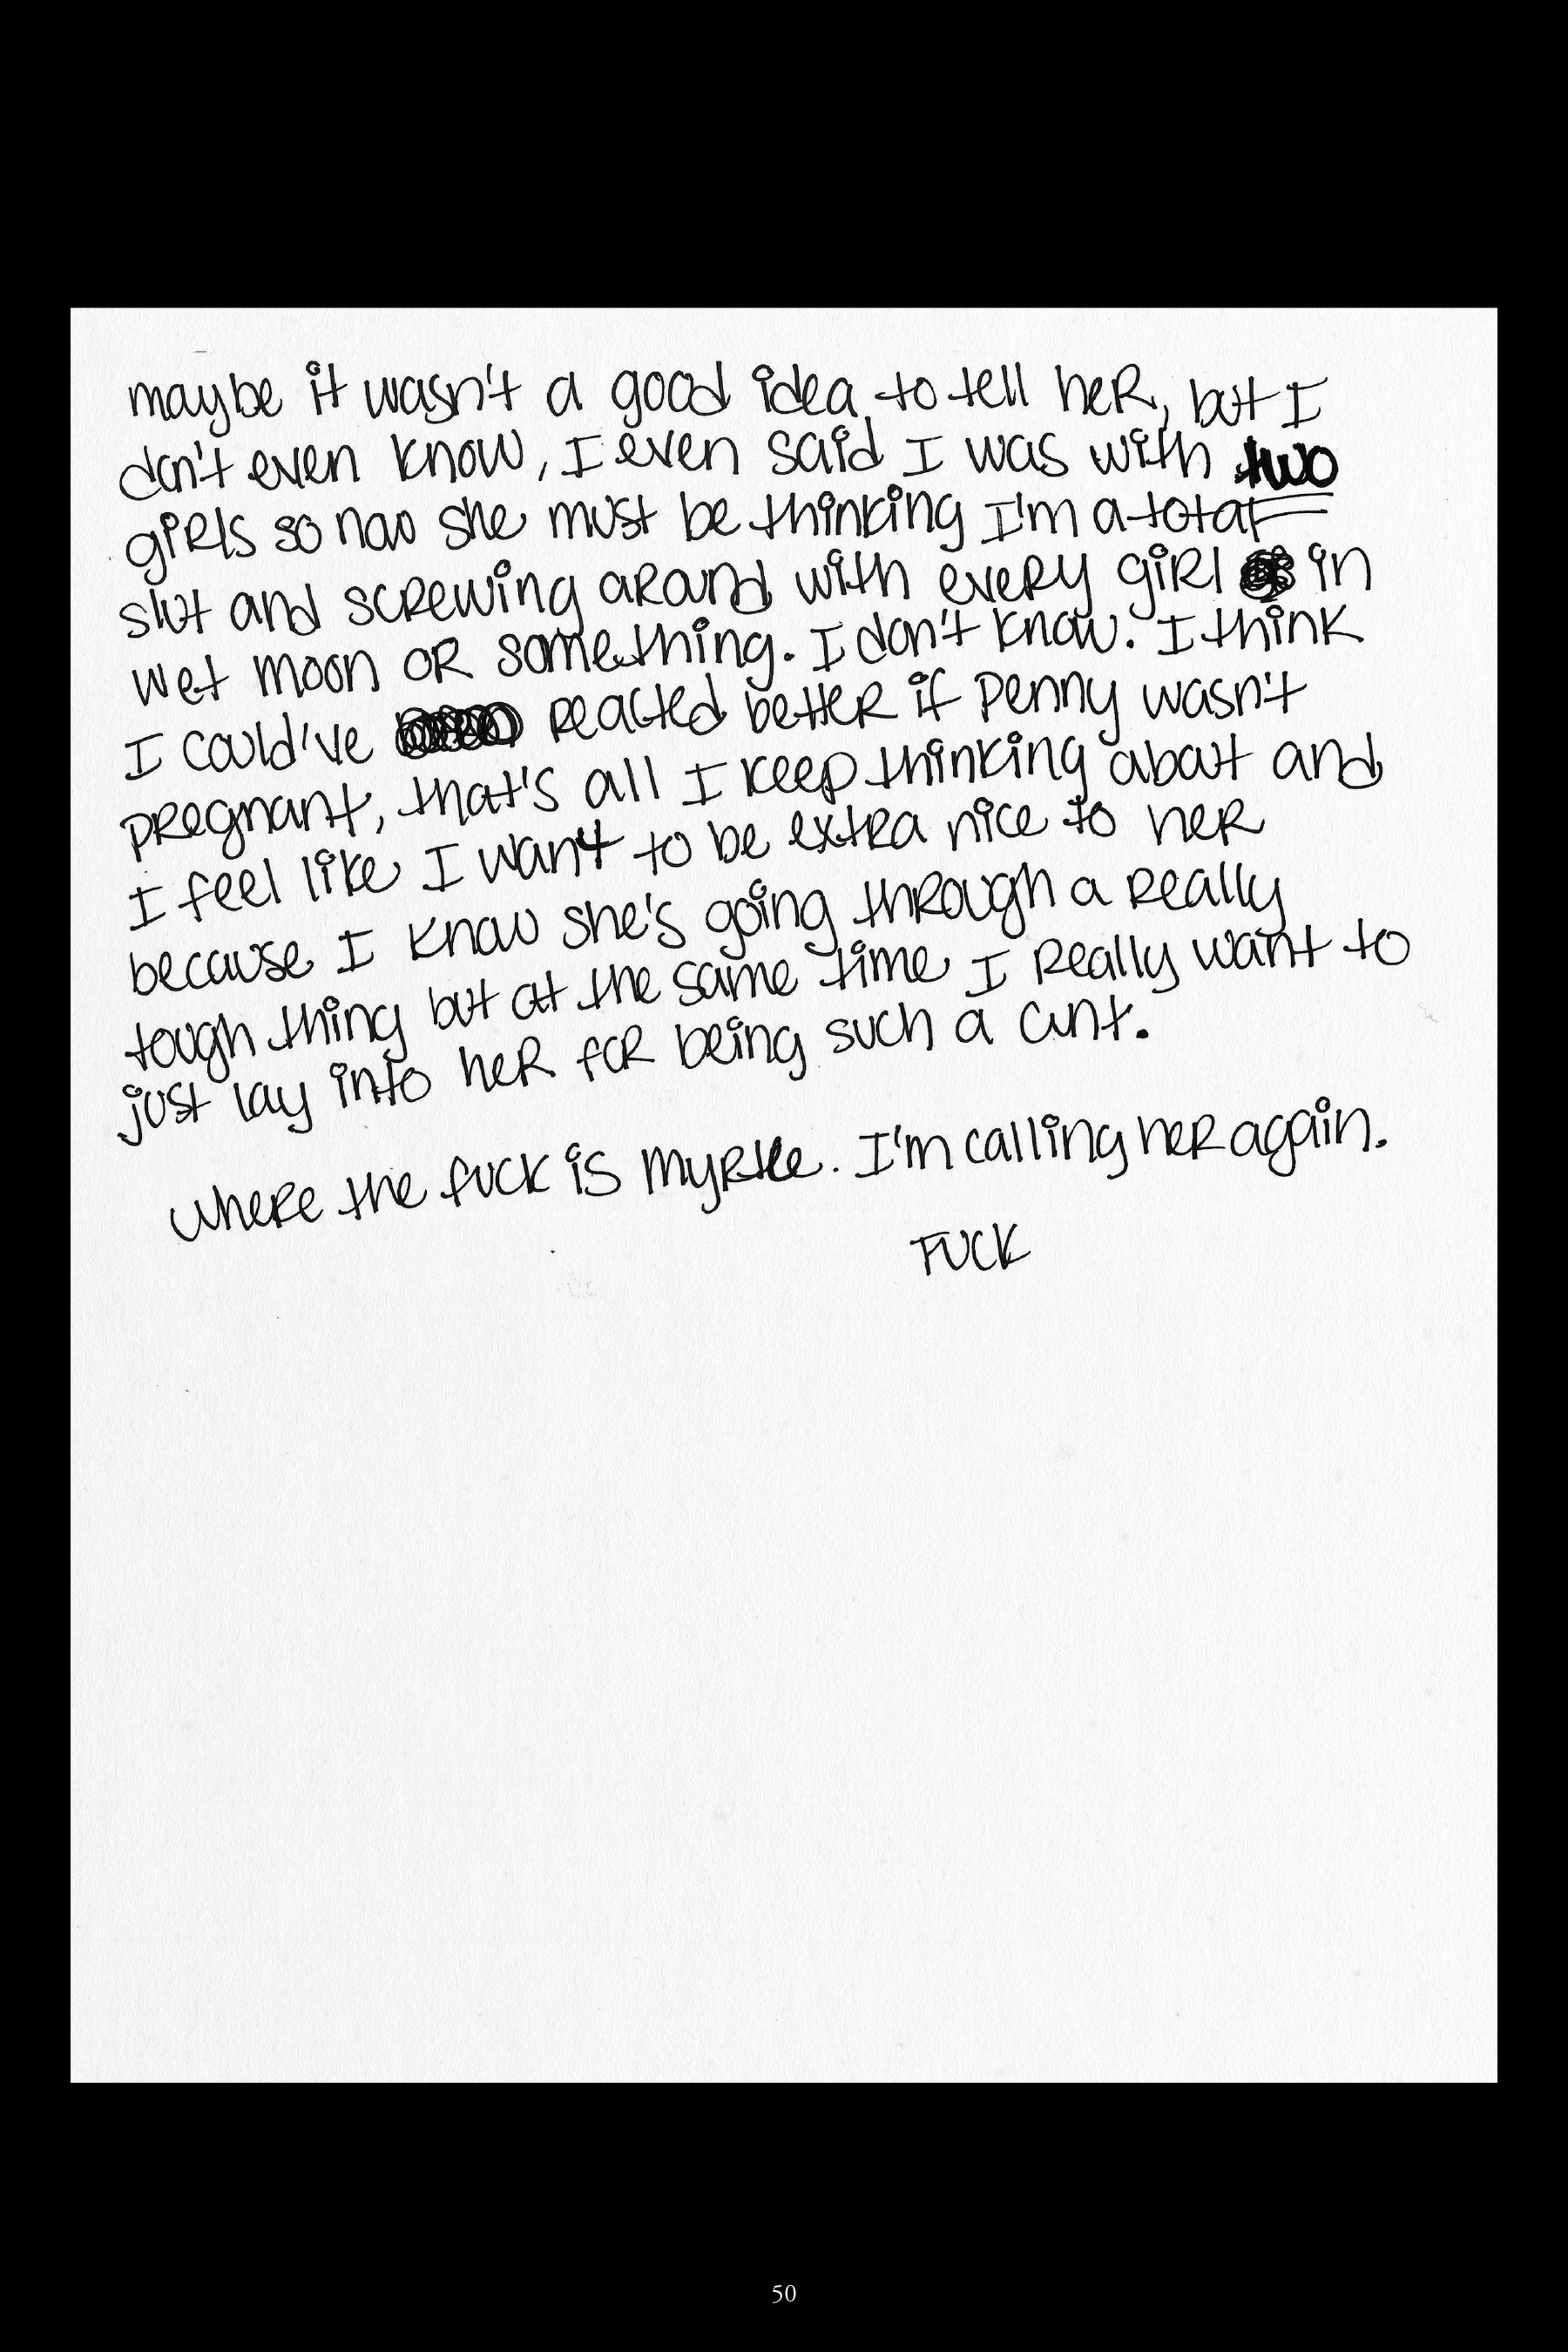 maybe it wasn't a good idea to tell her, but I
don't even know, I even said I was with two
girls so now she must be thinking I'm a total
slut and screwing around with every girl in
wet moon or something. I don't know. I think
I could've reacted better if Penny wasn't
pregnant, that's all I keep thinking about and
I feel like I want to be extra nice to her
because I know she's going through a really
tough thing but at the same time I really want to
just lay into her for being such a cunt.
where the fuck is Myrtle. I'm calling her again.
FUCK
50